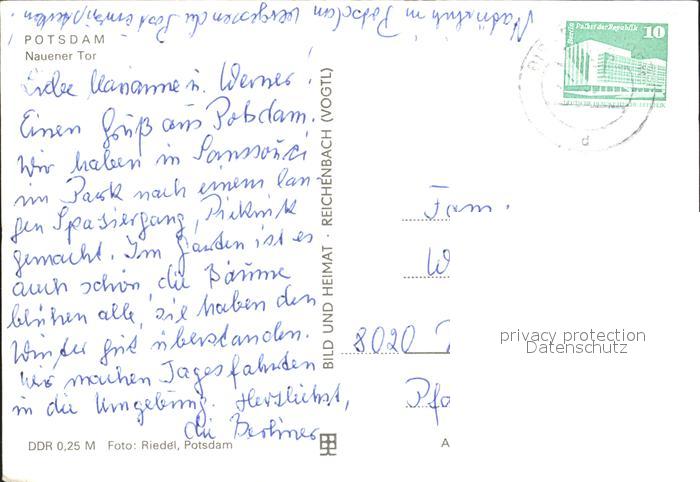 Natürlich in Potsdam vergessen die Post einzustecken!
POTSDAM
Nauener Tor
Liebe Marianne u. Werner!
Einen Gruß aus Potsdam.
Wir haben in Sanssouci
im Park nach einem lan-
gen Spaziergang, Picknick
gemacht. Im Garten ist es
auch schön, die Bäume
blühen alle, sie haben den
Winter gut überstanden.
Wir machen Tagesfahrten
in die Umgebung. Herzlichst,
die Berliner
DDR 0,25 M Foto: Riedel, Potsdam
BILD UND HEIMAT · REICHENBACH (VOGTL)
Berlin Palast der Republik
10
d
Fam.
W
8020
Pfo
A
privacy protection
Datenschutz